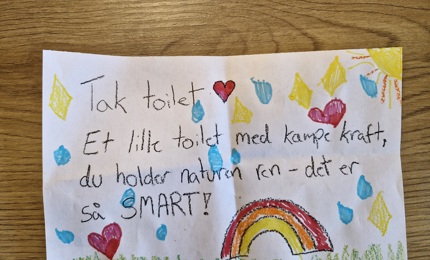 Tak toilet
Et lille toilet med kampe kraft,
du holder naturen ren - det er
så SMART!